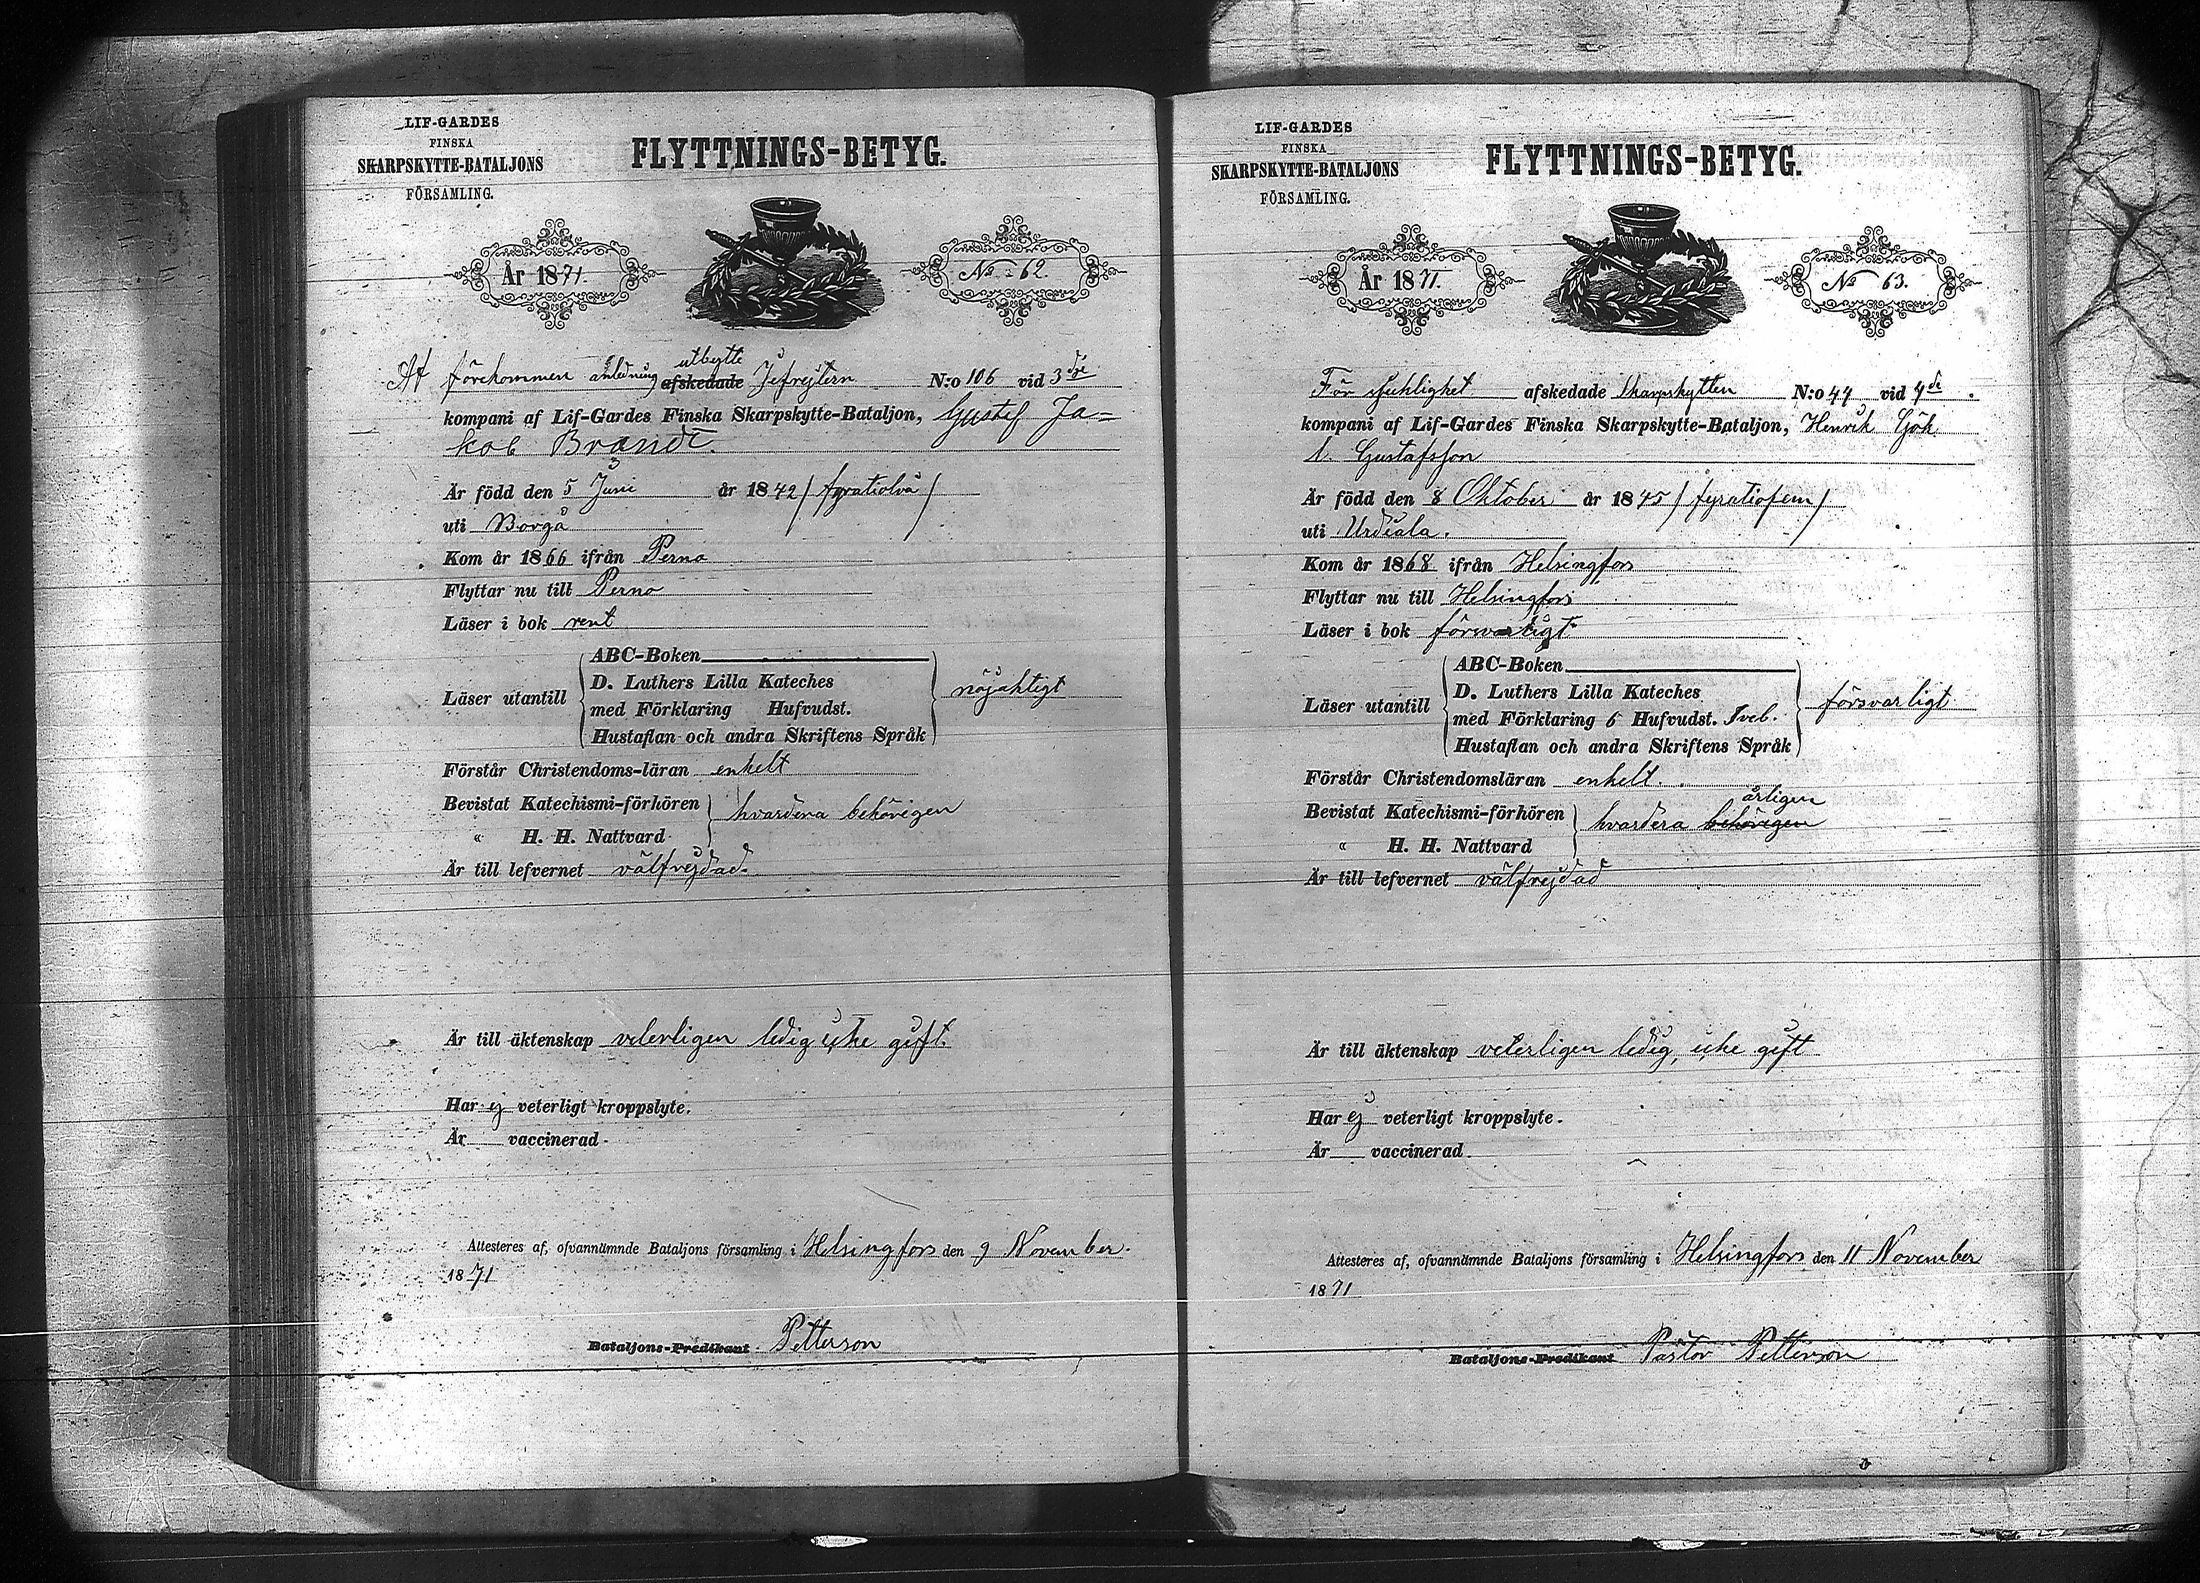 LIF-GARDES
FINSKA
SKARPSKYTTE-BATALJONS
FÖRSAMLING.
FLYTTNINGS-BETYG.
År 1871.
No 62
utbytte
Af förekommen anledning afskedade Jefrejtern N:o 106 vid 3dje
kompani af Lif-Gardes Finska Skarpskytte-Bataljon, Gustaf Ja-
kob Brandt.
Är född den 5 Juni år 1842 / fyratiotvå /
uti Borgå
Kom år 1866 ifrån Perno
Flyttar nu till Perno
Läser i bok rent
Läser utantill
ABC-Boken
D. Luthers Lilla Kateches
med Förklaring Hufvudst.
Hustaflan och andra Skriftens Språk
nöjaktigt
Förstår Christendoms-läran enkelt
Bevistat Katechismi-förhören
hvardera behörigen
" H. H. Nattvard
Är till lefvernet välfrejdad.
Är till äktenskap veterligen ledig icke gift.
Har ej veterligt kroppslyte.
Är vaccinerad
Attesteres af, ofvannämnde Bataljons församling i Helsingfors den 9 November.
1871
Bataljons-Predikant Petterson
LIF-GARDES
FINSKA
SKARPSKYTTE-BATALJONS
FÖRSAMLING.
FLYTTNINGS-BETYG.
År 1871.
No 63.
För sjuklighet afskedade Skarpskytten N:o 44 vid 4de
kompani af Lif-Gardes Finska Skarpskytte-Bataljon, Henrik Gök
l. Gustafsson
Är född den 8 Oktober år 1845 / fyratiofem /
uti Urdiala.
Kom år 1868 ifrån Helsingfors
Flyttar nu till Helsingfors
Läser i bok försvarligt
Läser utantill
ABC-Boken
D. Luthers Lilla Kateches
med Förklaring 6 Hufvudst. Sveb.
Hustaflan och andra Skriftens Språk
försvarligt
Förstår Christendomsläran enkelt.
Bevistat Katechismi-förhören
årligen
hvardera behörigen
" H. H. Nattvard
Är till lefvernet välfrejdad
Är till äktenskap veterligen ledig, icke gift
Har ej veterligt kroppslyte.
Är vaccinerad
Attesteres af, ofvannämnde Bataljons församling i Helsingfors den 11 November
1871
Bataljons-Predikant Pastor Petterson